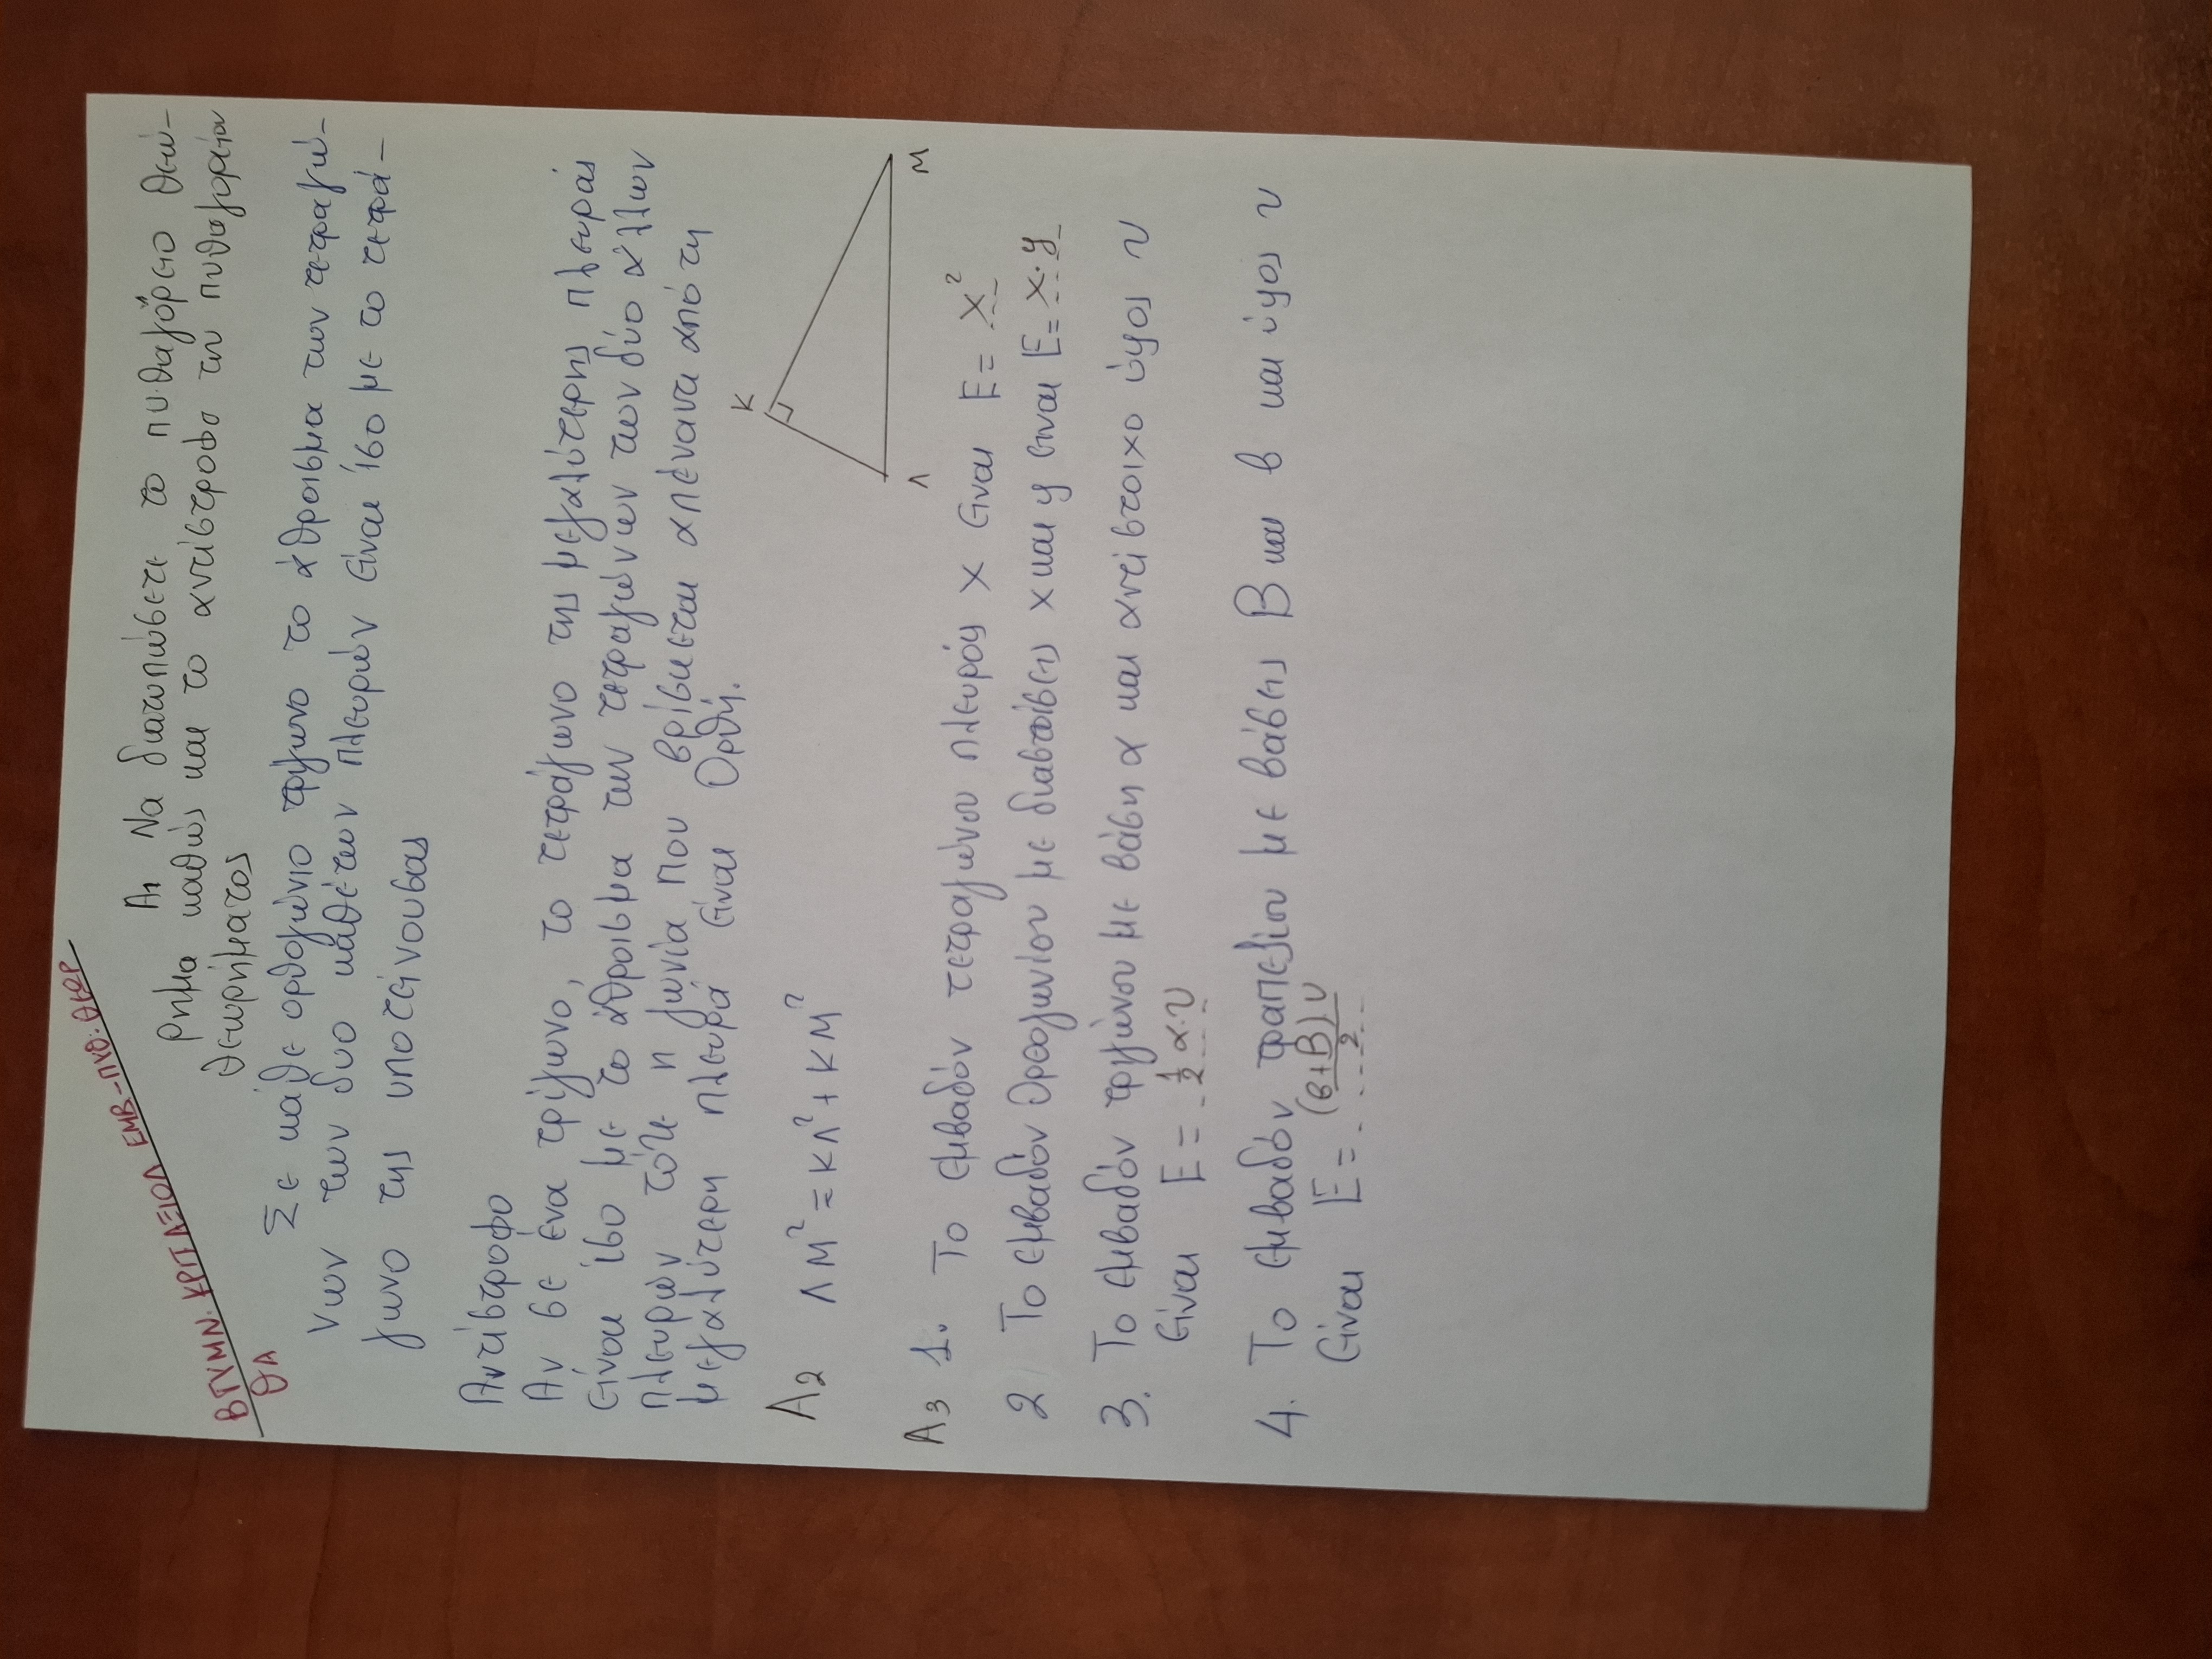 ΒΓΥΜΝ. ΚΡΙΤ ΑΞΙΟΛ ΕΜΒ-ΠΥΘ. ΘΕΩΡ
ΘΑ
Α1 Να διατυπώσετε το πυθαγόρειο θεώ-
ρημα καθώς και το αντίστροφο του πυθαγορείου
θεωρήματος
Σε κάθε ορθογώνιο τρίγωνο το άθροισμα των τετραγώ-
νων των δυο καθέτων πλευρών είναι ίσο με το τετρά-
γωνο της υποτείνουσας
Αντίστροφο
Αν σε ένα τρίγωνο, το τετράγωνο της μεγαλύτερης πλευράς
είναι ίσο με το άθροισμα των τετραγώνων των δύο άλλων
πλευρών τότε η γωνία που βρίσκεται απέναντι από τη
μεγαλύτερη πλευρά είναι Ορθή.
Α2 ΛΜ² = ΚΛ² + ΚΜ²
Κ
Λ
Μ
Α3 1. Το εμβαδόν τετραγώνου πλευράς x είναι Ε = x²
2 Το εμβαδόν Ορθογωνίου με διαστάσεις x και y είναι Ε = x·y
3. Το εμβαδόν τριγώνου με βάση α και αντίστοιχο ύψος υ
είναι Ε = 1/2 α·υ
4. Το εμβαδόν τραπεζίου με βάσεις Β και β και ύψος υ
είναι Ε = (β+Β)·υ/2